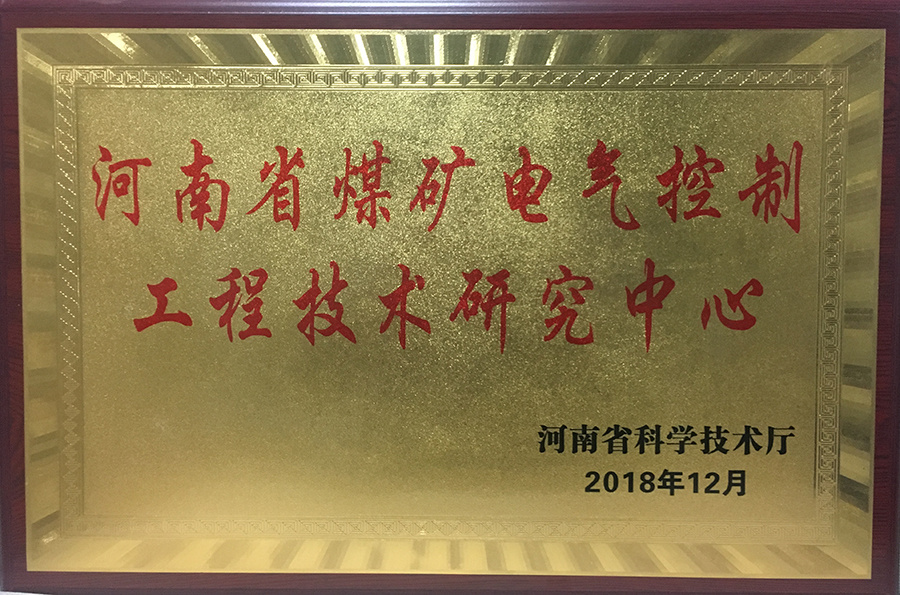 河南省煤矿电气控制
工程技术研究中心
河南省科学技术厅
2018年12月